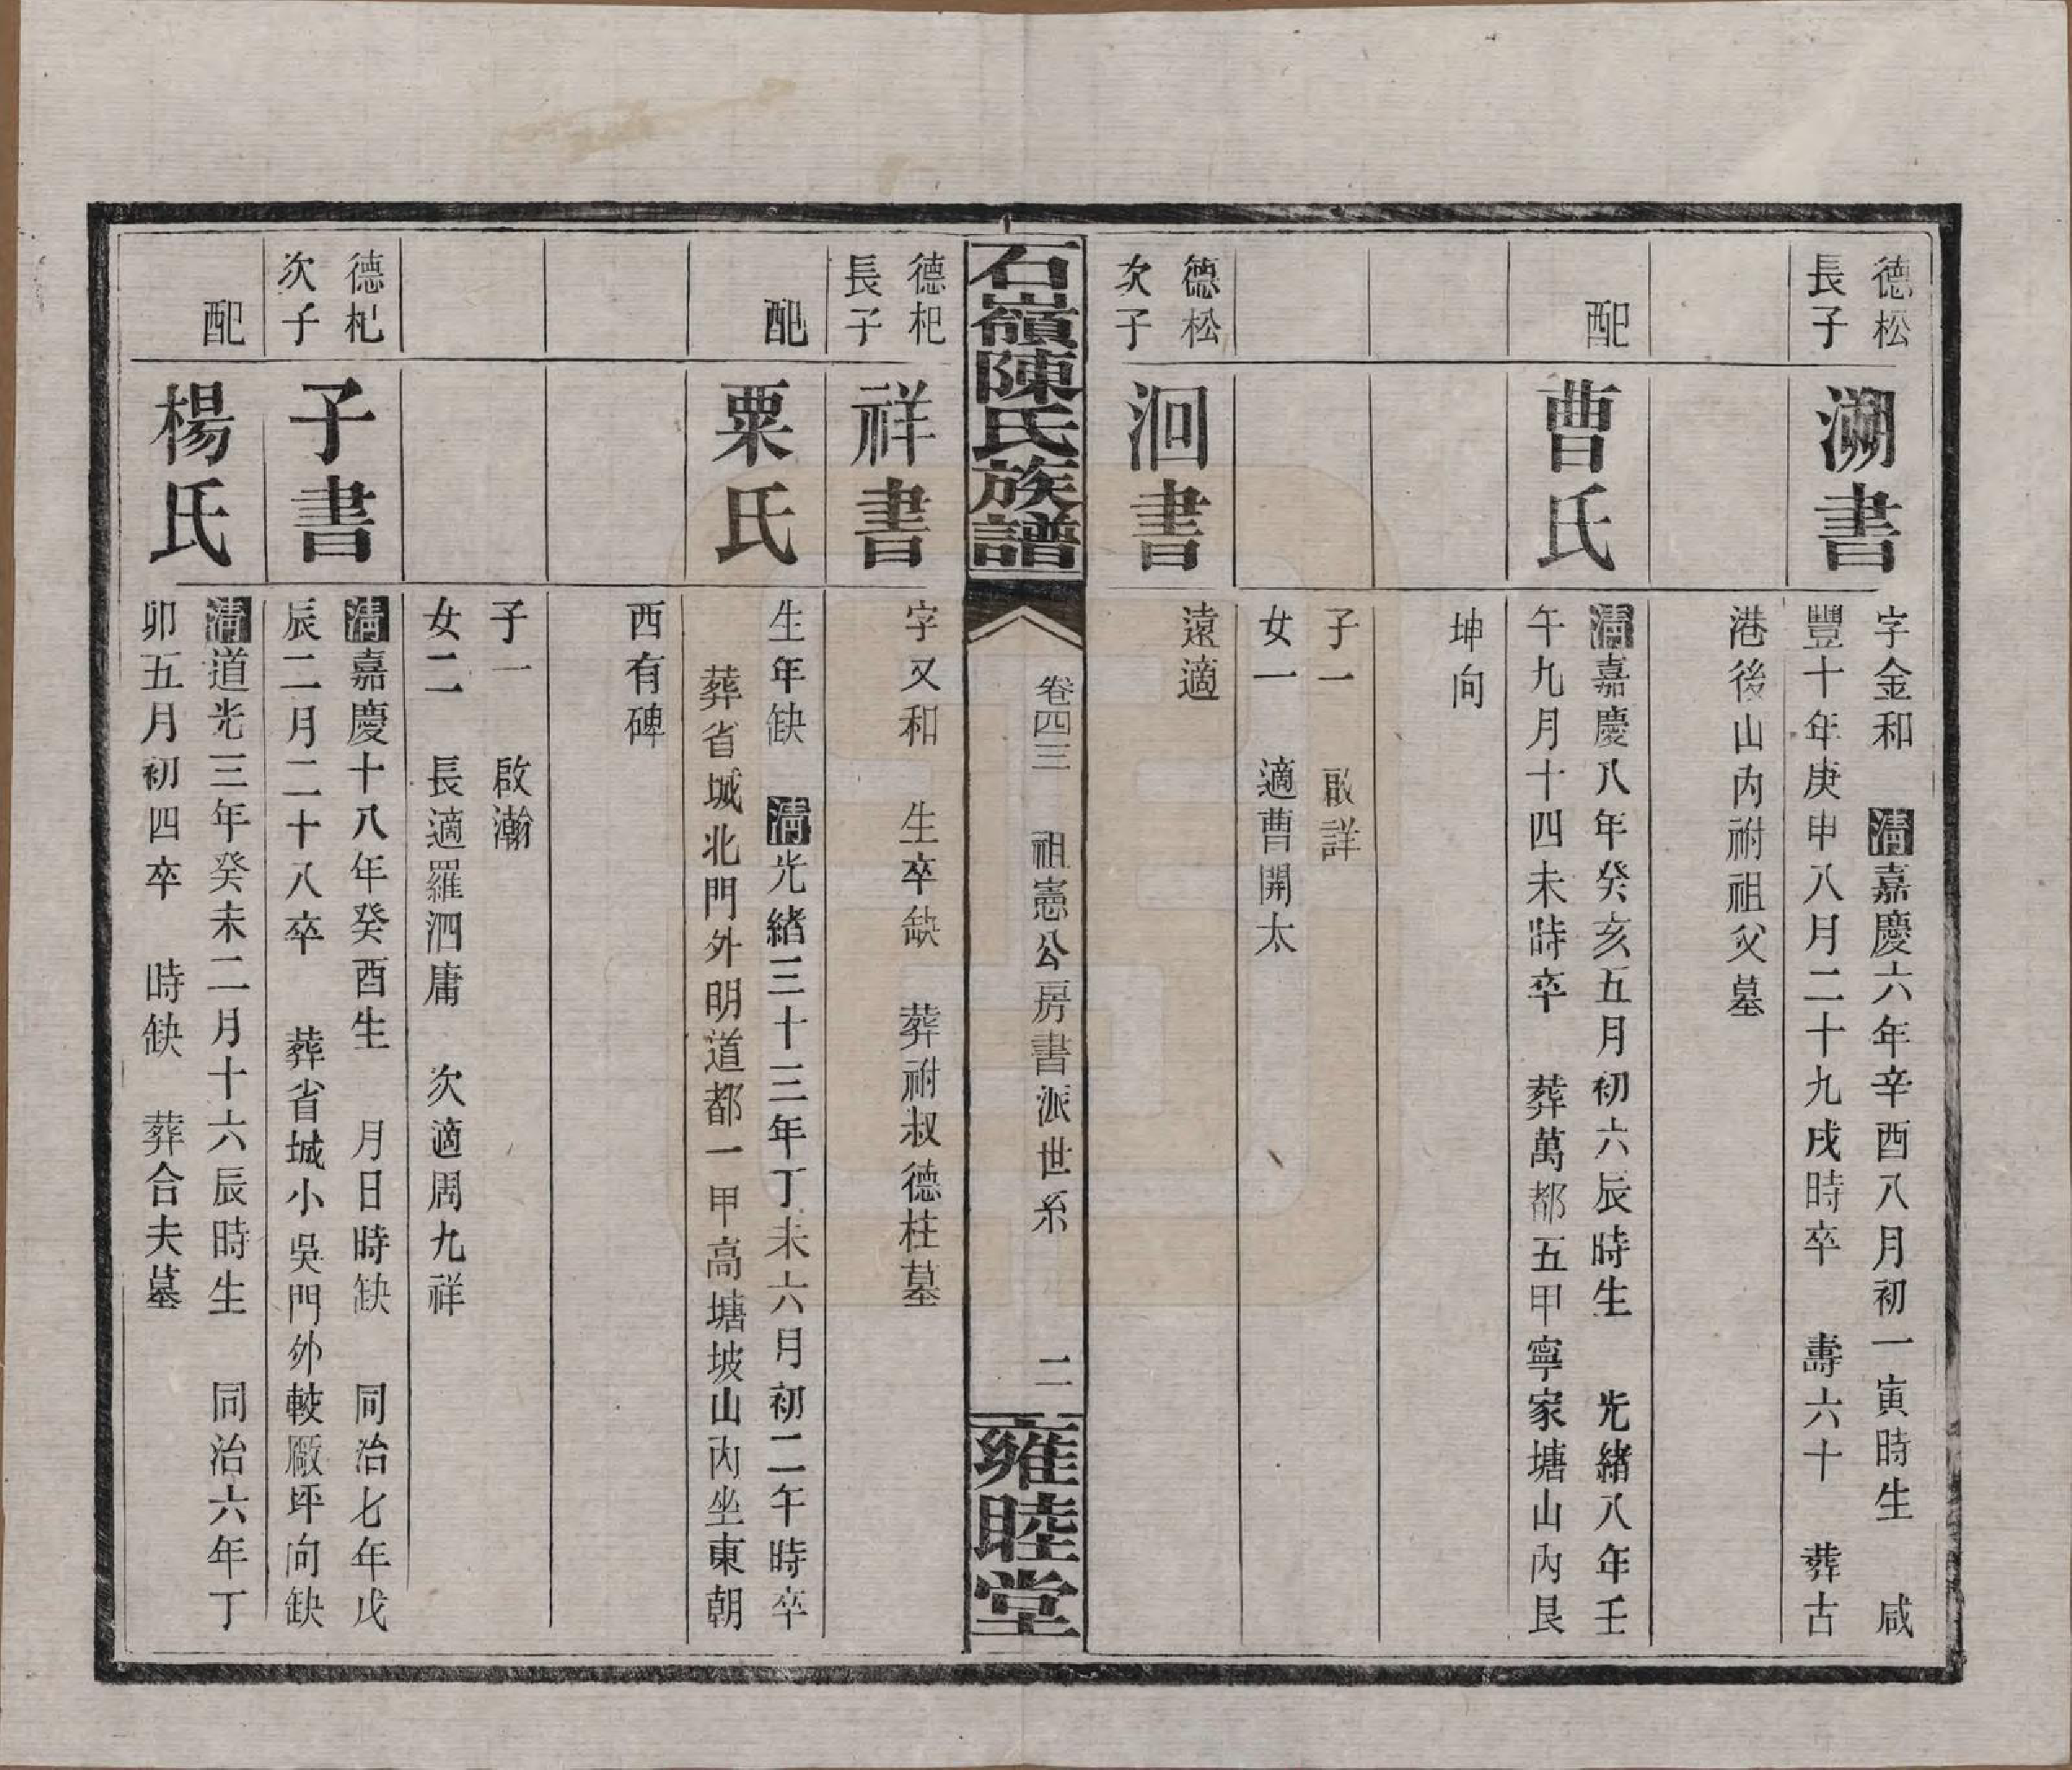 德松
長子
溯書
字金和 清嘉慶六年辛酉八月初一寅時生 咸
豐十年庚申八月二十九戌時卒 壽六十 葬古
港後山內祔祖父墓
配
曹氏
清嘉慶八年癸亥五月初六辰時生 光緒八年壬
午九月十四未時卒 葬萬都五甲寧家塘山內艮
坤向
子一 啟詳
女一 適曹開太
德松
次子
洄書
遠適
石嶺陳氏族譜
卷四三 祖憲公房書派世系 二
雍睦堂
德杞
長子
祥書
字又和 生卒缺 葬祔叔德柱墓
配
粟氏
生年缺 清光緒三十三年丁未六月初二午時卒
葬省城北門外明道都一甲高塘坡山內坐東朝
西有碑
子一 啟瀚
女二 長適羅泗庸 次適周九祥
德杞
次子
子書
清嘉慶十八年癸酉生 月日時缺 同治七年戊
辰二月二十八卒 葬省城小吳門外較厰坪向缺
配
楊氏
清道光三年癸未二月十六辰時生 同治六年丁
卯五月初四卒 時缺 葬合夫墓